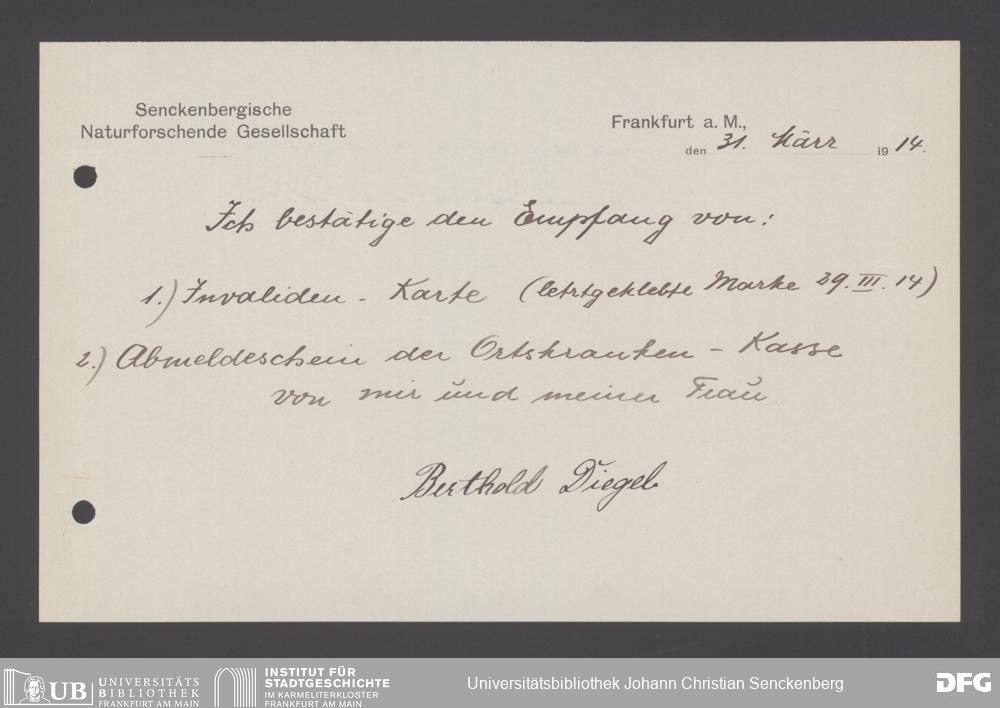 Senckenbergische
Naturforschende Gesellschaft
Frankfurt a. M.,
den 31. März 1914.
Ich bestätige den Empfang von:
1.) Invaliden - Karte (letztgeklebte Marke 29. III. 14)
2.) Abmeldeschein der Ortskranken - Kasse
von mir und meiner Frau
Berthold Diegel
UB UNIVERSITÄTS
BIBLIOTHEK
FRANKFURT AM MAIN
INSTITUT FÜR
STADTGESCHICHTE
IM KARMELITERKLOSTER
FRANKFURT AM MAIN
Universitätsbibliothek Johann Christian Senckenberg
DFG